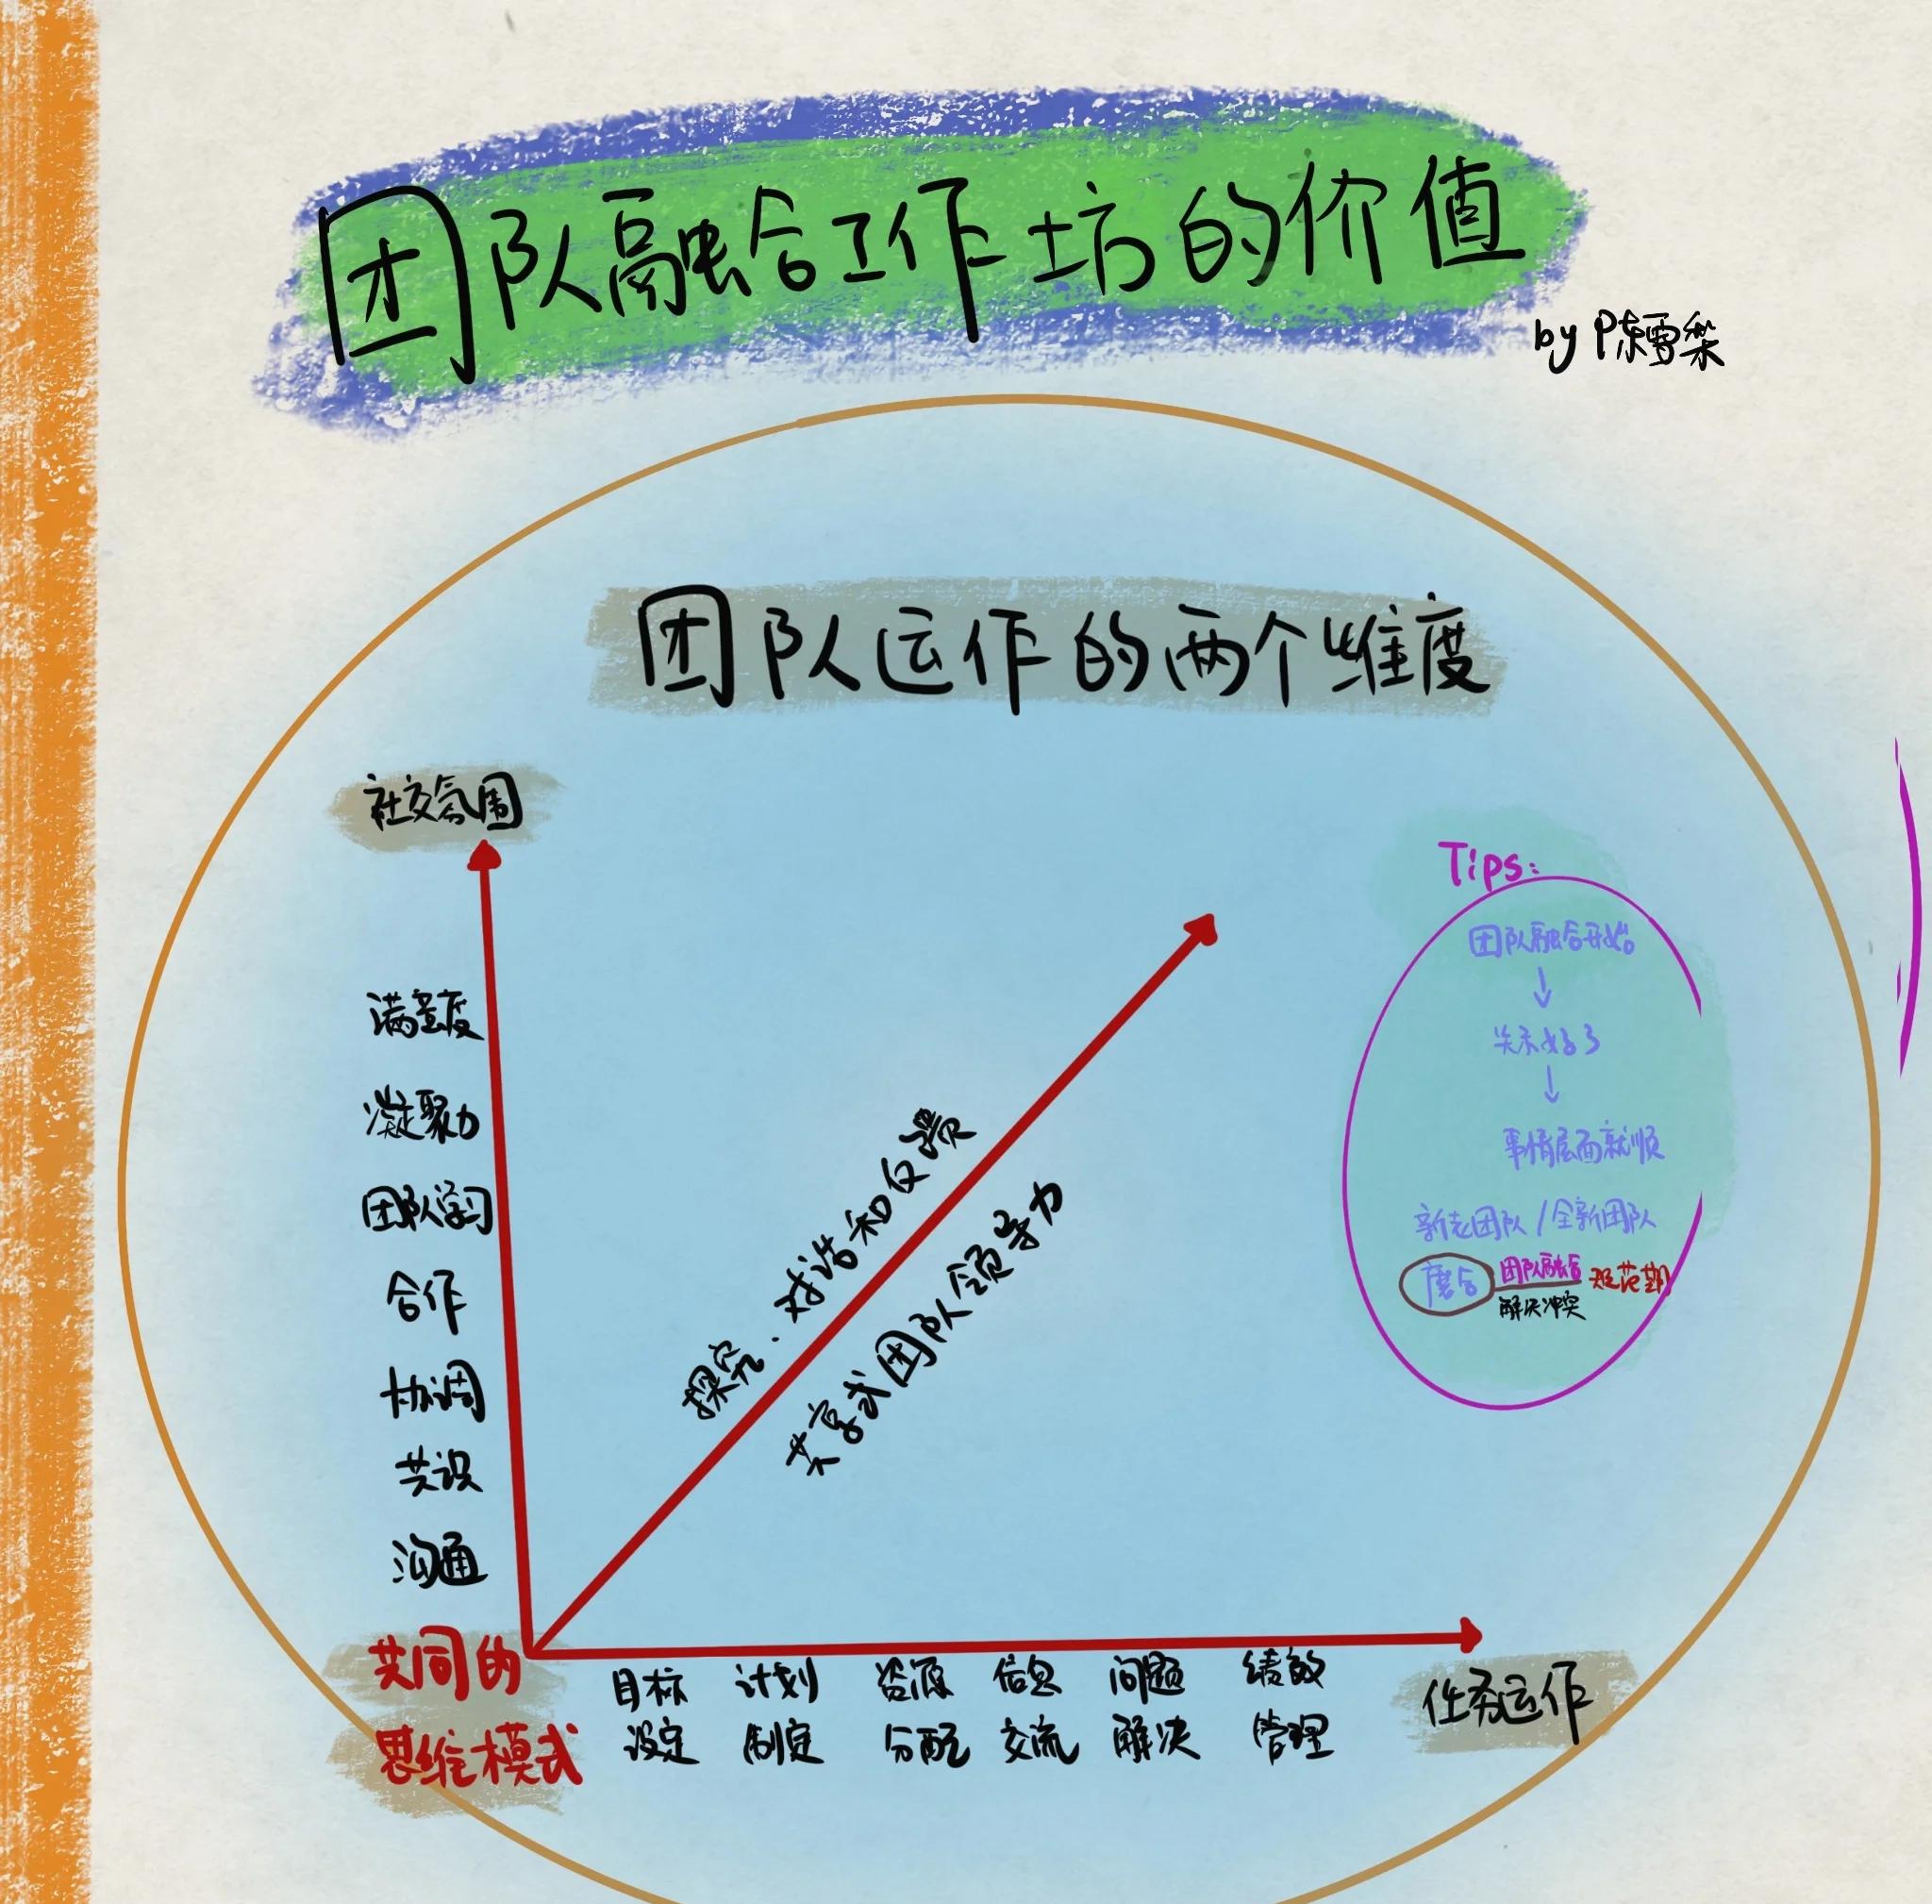 团队融合工作坊的价值
by 陈雪梨
团队运作的两个维度
社交氛围
满意度
凝聚力
团队学习
合作
协调
共识
沟通
共同的
思维模式
探究、对话和反馈
共享式团队领导力
目标
设定
计划
制定
资源
分配
信息
交流
问题
解决
绩效
管理
任务运作
Tips:
团队融合开始
↓
关系好了
↓
事情层面就顺
新老团队/全新团队
磨合 团队融合 规范期
解决冲突